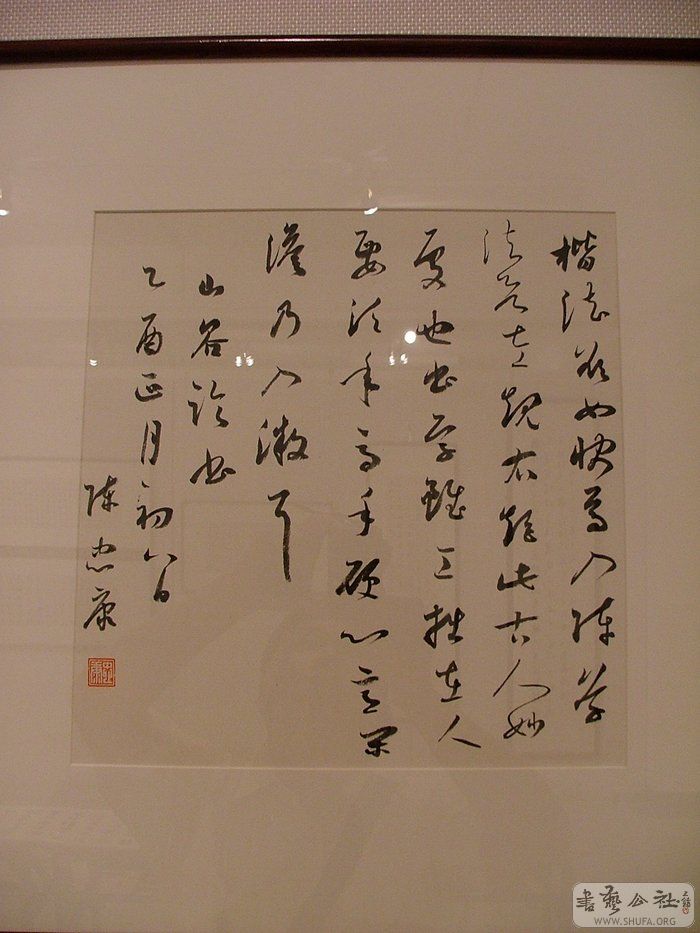 楷法欲如快馬入陣草
法欲左規右矩此古人妙
處也書字雖工拙在人
要須年高手硬心意閑
澹乃入微耳
山谷論書
乙酉正月初八日
陳忠康
書藝公社
WWW.SHUFA.ORG